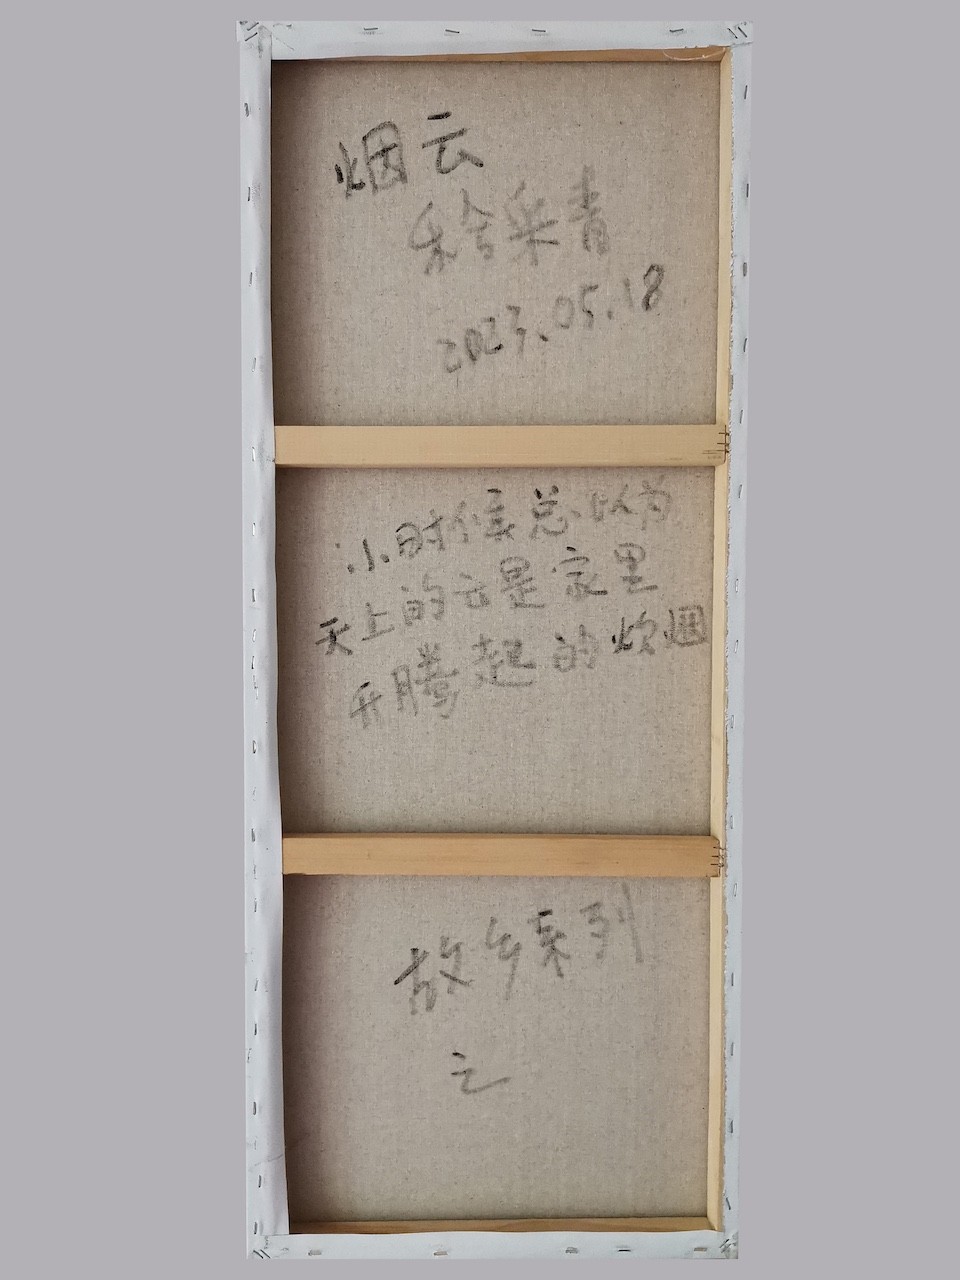 烟云
禾舍采青
2023.05.18
小时候总以为
天上的云是家里
升腾起的炊烟
故乡系列
之